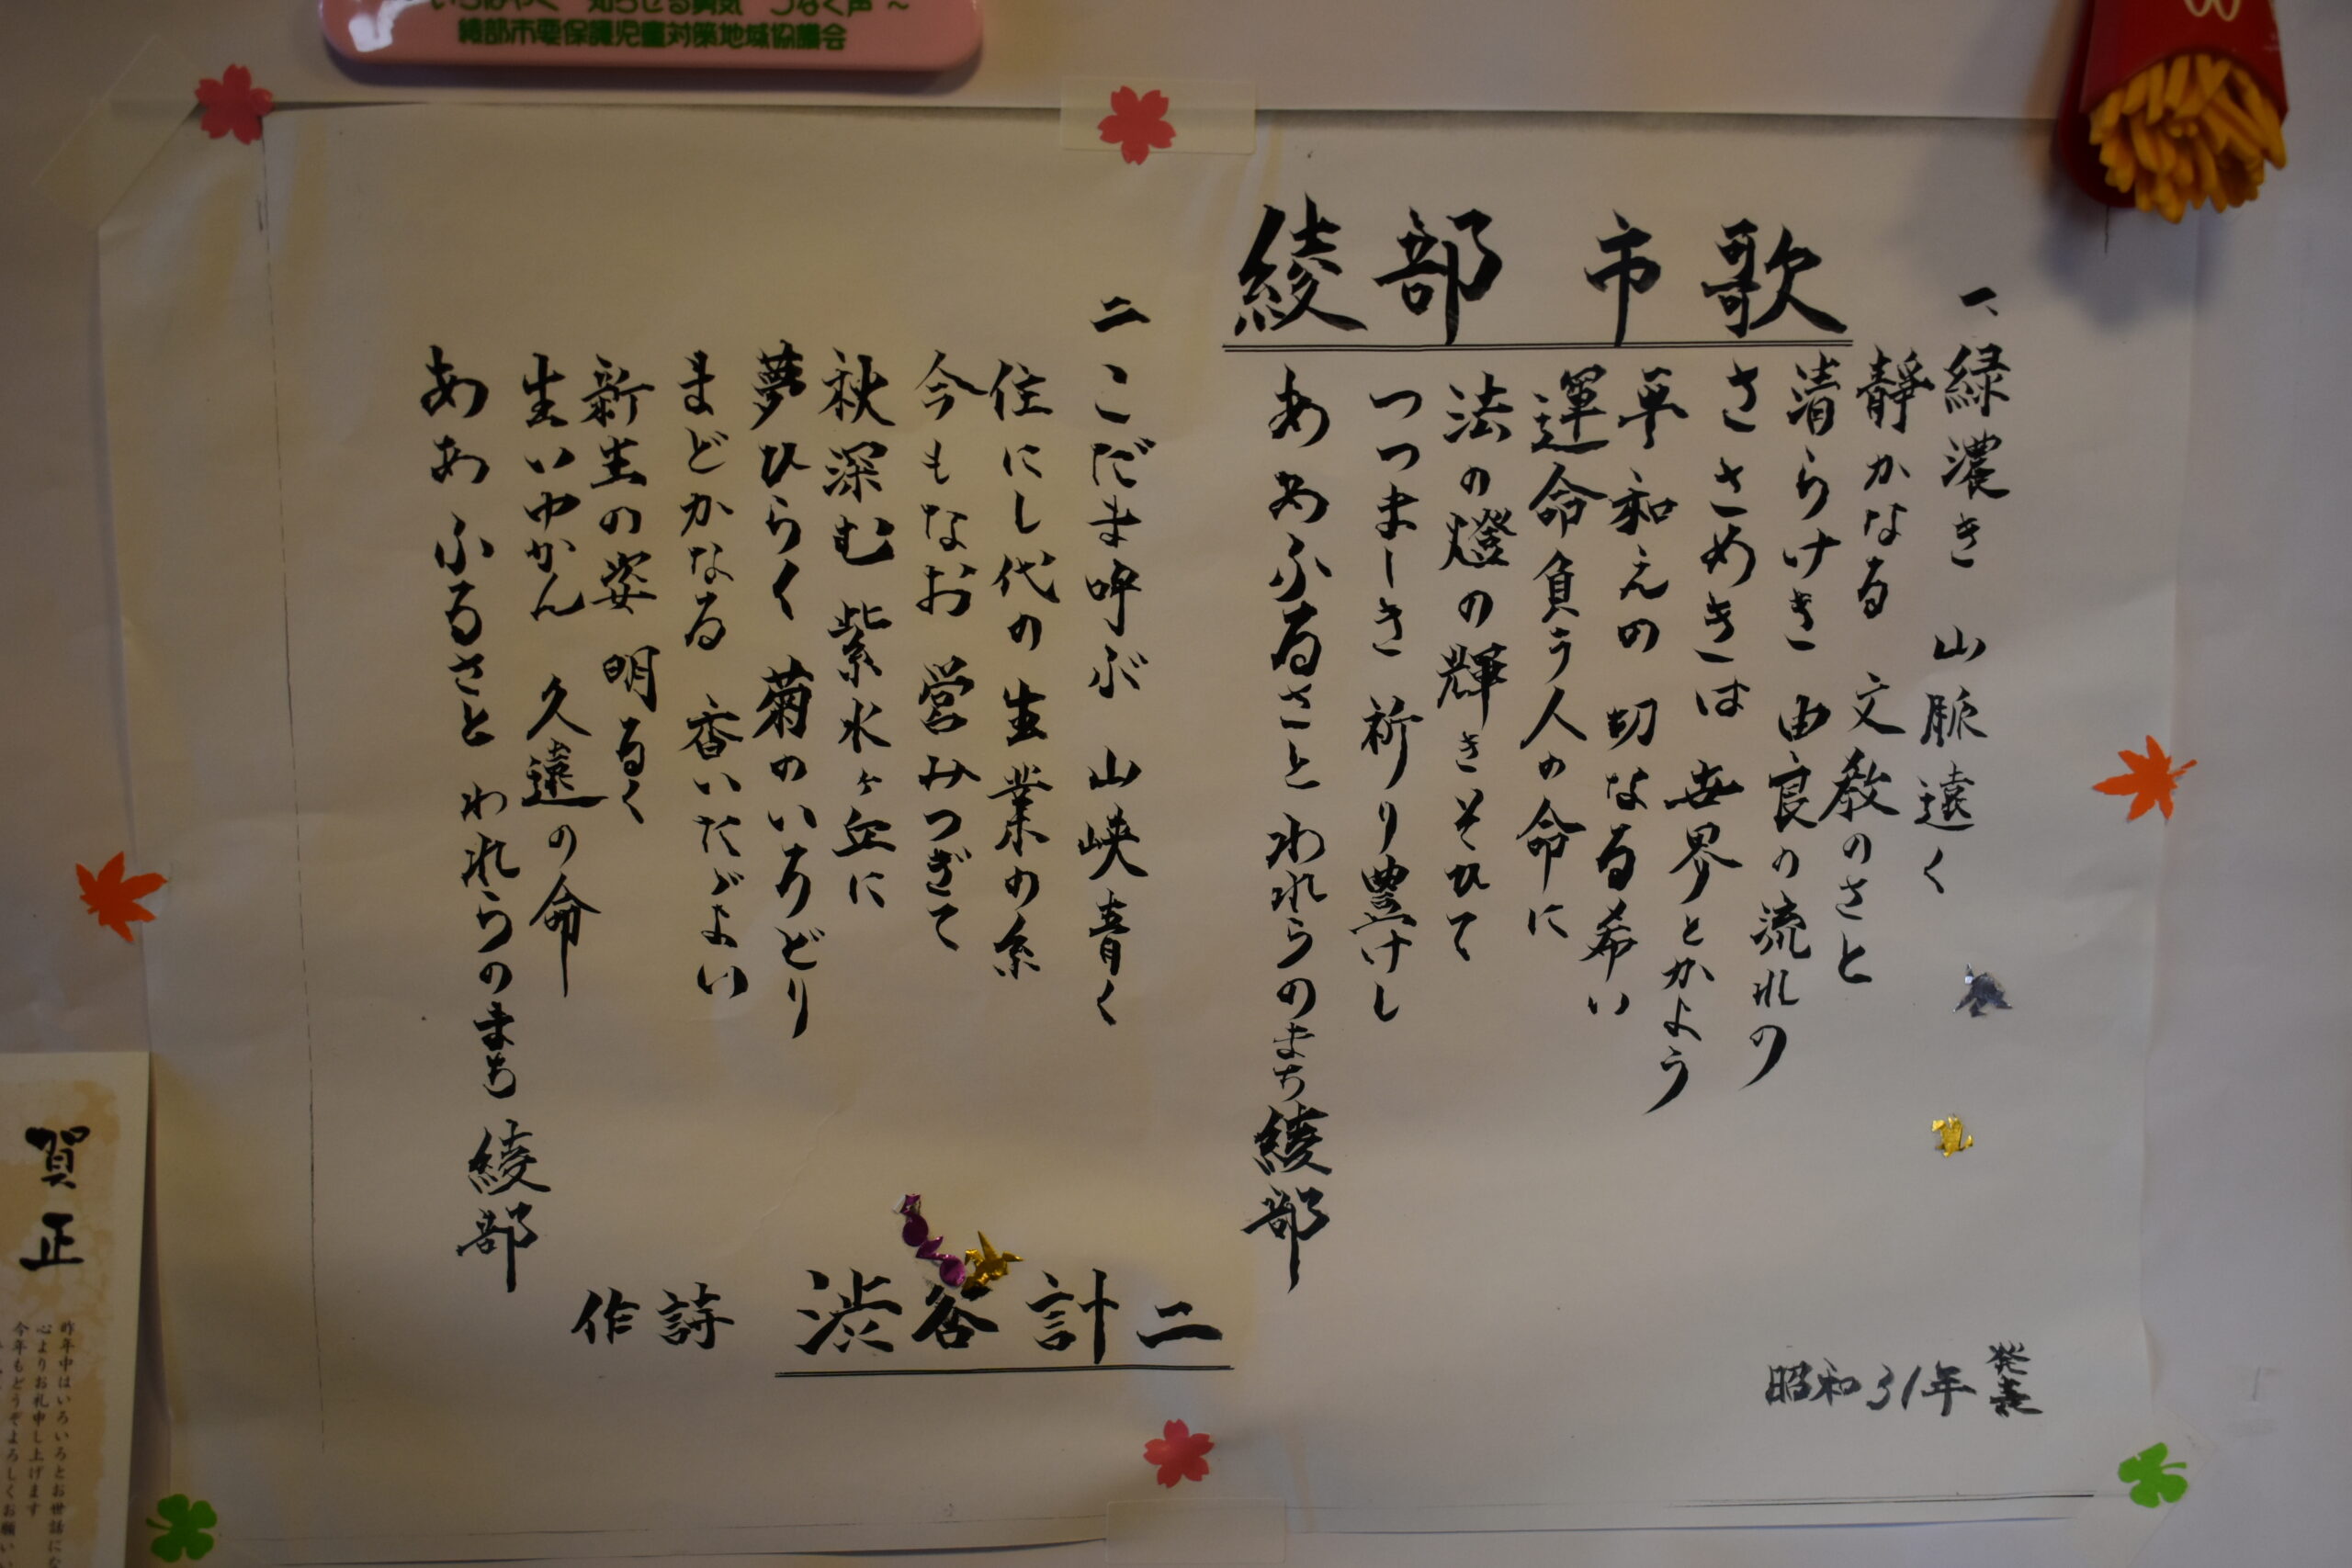 綾部市要保護児童対策地域協議会
綾部市歌
一、緑濃き 山脈遠く
静かなる 文教のさと
清らけき 由良の流れの
ささめきは 世界とかよう
平和えの 切なる希い
運命負う人の命に
法の燈の輝きそひて
つつましき 祈り豊けし
ああふるさと われらのまち綾部
二 こだま呼ぶ 山峡青く
住にし代の生業の糸
今もなお 営みつぎて
秋深む 紫水ヶ丘に
夢ひらく 菊のいろどり
まどかなる 香いたゞよい
新生の姿 明るく
生いゆかん 久遠の命
ああ ふるさと われらのまち 綾部
作詩 渋谷計二
昭和31年発表
賀正
昨年中はいろいろとお世話にな
心よりお礼申し上げます
今年もどうぞよろしくお願い